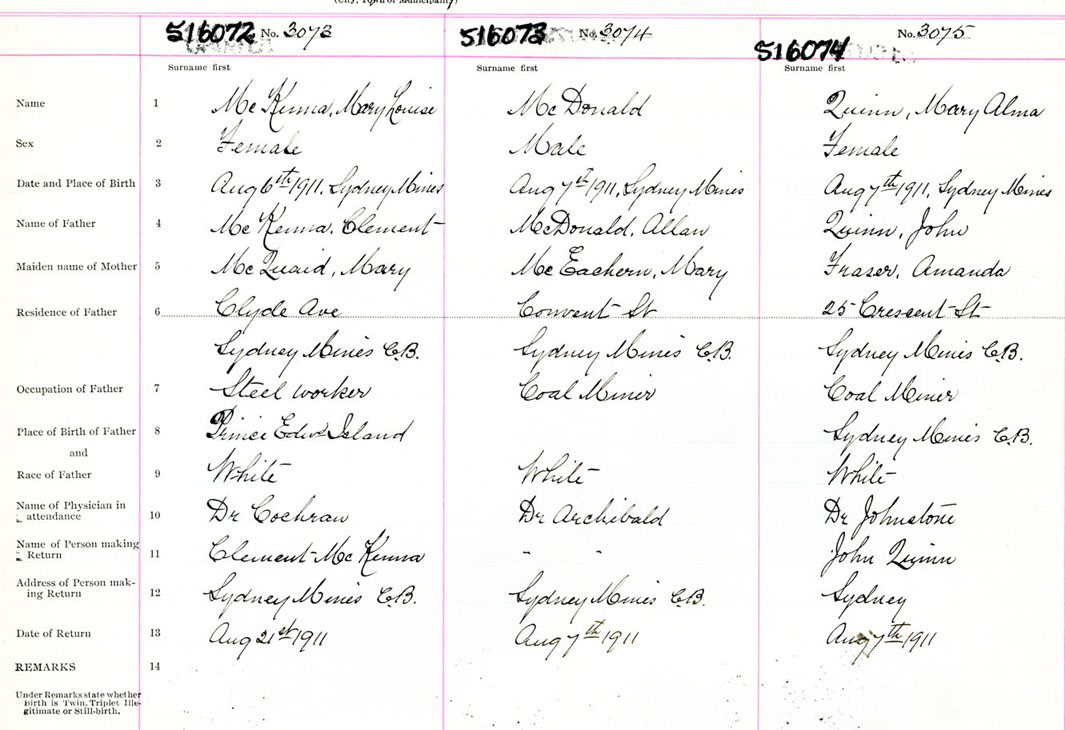 (City, Town or Municipality)
516072 No. 3073 516073 No. 3074 516074 No. 3075
Surname first Surname first Surname first
Name 1 McKenna, Mary Louise McDonald Quinn, Mary Alma
Sex 2 Female Male Female
Date and Place of Birth 3 Aug 6th 1911, Sydney Mines Aug 7th 1911, Sydney Mines Aug 7th 1911, Sydney Mines
Name of Father 4 McKenna, Clement McDonald, Allan Quinn, John
Maiden name of Mother 5 McQuaid, Mary McEachern, Mary Fraser, Amanda
Residence of Father 6 Clyde Ave Convent St 25 Crescent St
Sydney Mines C.B. Sydney Mines C.B. Sydney Mines C.B.
Occupation of Father 7 Steel worker Coal Miner Coal Miner
Place of Birth of Father 8 Prince Edwd Island Sydney Mines C.B.
and
Race of Father 9 White White White
Name of Physician in
attendance 10 Dr Cochran Dr Archibald Dr Johnstone
Name of Person making
Return 11 Clement McKenna " " John Quinn
Address of Person mak-
ing Return 12 Sydney Mines C.B. Sydney Mines C.B. Sydney
Date of Return 13 Aug 21st 1911 Aug 7th 1911 Aug 7th 1911
REMARKS 14
Under Remarks state whether
Birth is Twin, Triplet Ille-
gitimate or Still-birth.